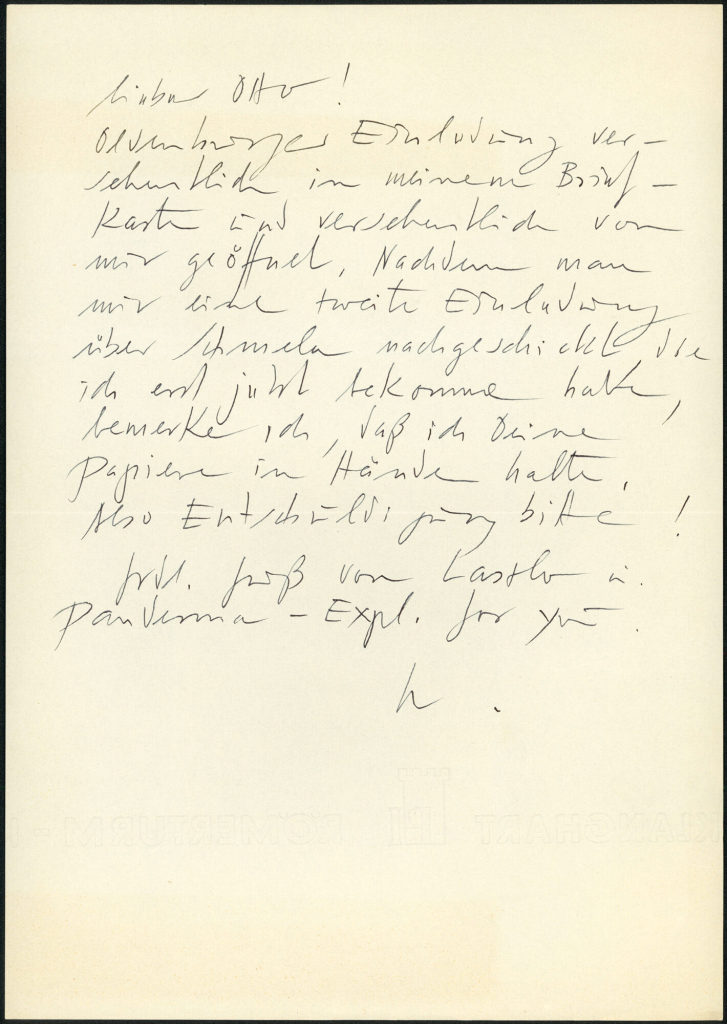 lieber Otto !
Oldenburger Einladung ver-
sehentlich in meinem Brief-
Kasten und versehentlich von
mir geöffnet, Nachdem man
mir eine zweite Einladung
über Schmela nachgeschickt, die
ich erst jetzt bekomme habe,
bemerke ich, daß ich Deine
Papiere in Händen halte.
Also Entschuldigung bitte !
frdl. Gruß von Laszlo u.
Panderma - Expl. for you .
KLANGHART RÖMERTURM -